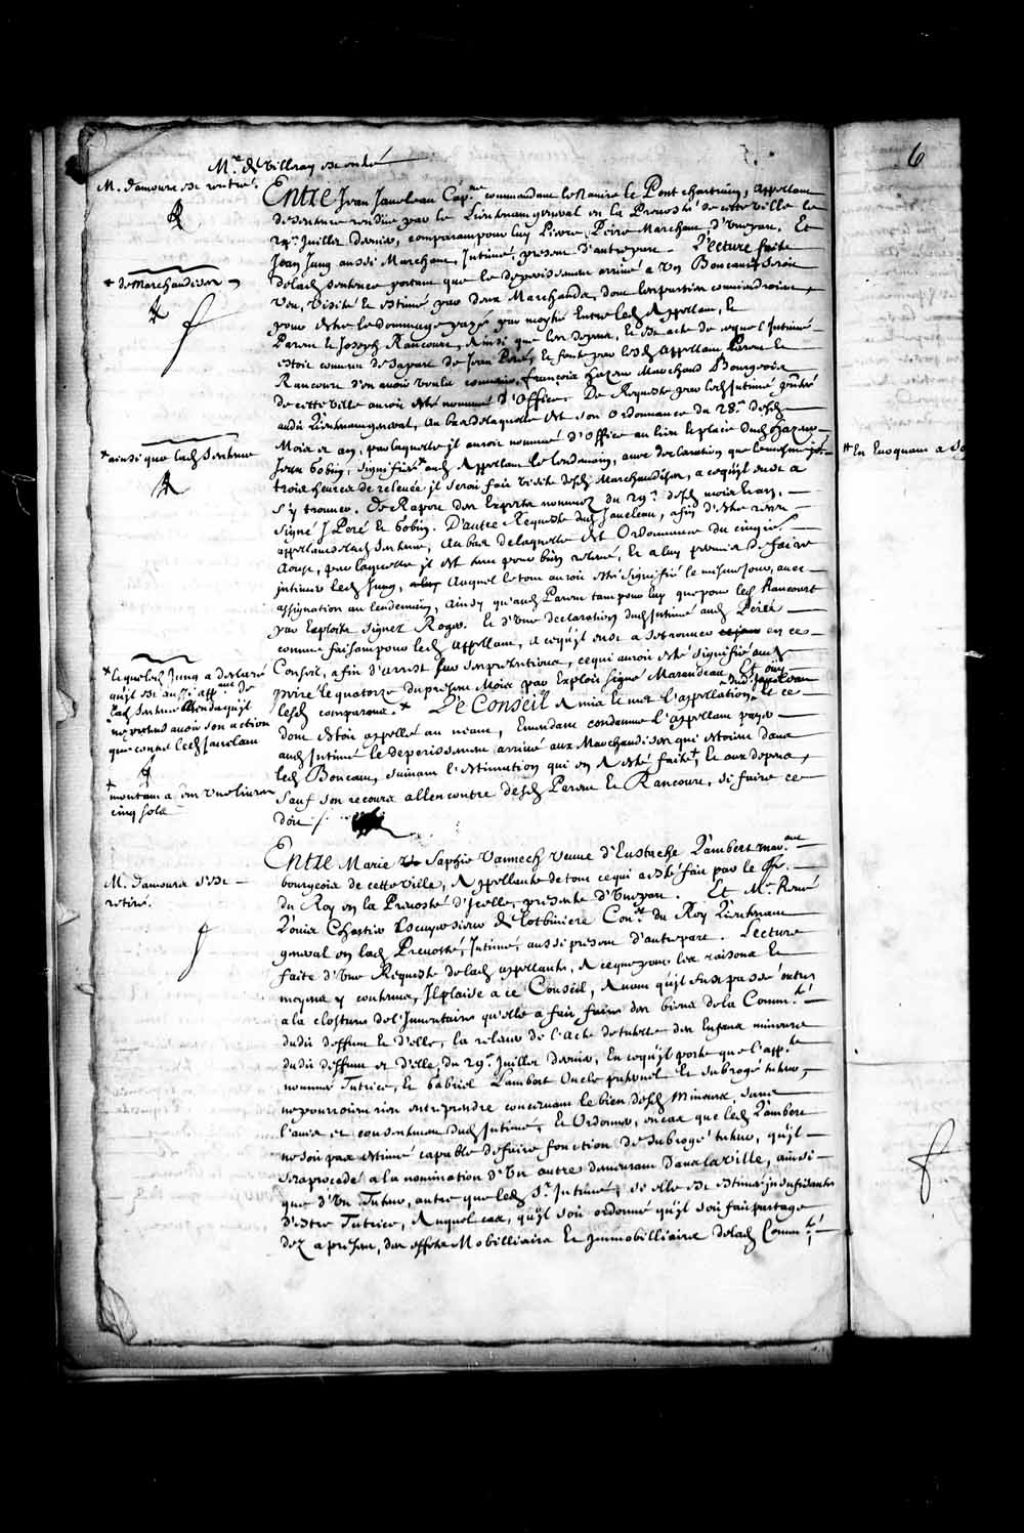 Mr. de Villeray
M. damours
Entre Jean Janeleau Cap.ne commandant le Navire le Pont chartrain, appellant
de sentence rendue par le Lieutenant general en la Prevosté de cette ville le
29e. Juillet dernier, comparant pour luy Pierre Marchant, d'une part. Et
Jean Jung aussi Marchant, Intimé present d'autre part. Lecture faite
* de Marchandises
de lad. sentence portant que le deperissement arrivé a un Boucaut seroit
veu, visité et estimé par deux Marchands, dont les parties conviendroient,
pour estre le dommage payé par moytié Entre led. Appellant, et
Parent et Joseph Rancourt, Ainsi que les depens, Et
estoit convenu de sa part de Jean et faute par lesd. appellant Parent et
Rancourt d'en avoir voulu convenir, françois hazeur Marchand Bourgeois
de cette ville auroit esté nommé d'Office. De Requeste par led. Intimé
aud. Lieutenant general, Au bas de laquelle est son Ordonnance du 28e. desd.
* ainsi que lad. sentence
Mois et an, par laquelle il auroit nommé d'Office au lieu et place dud. hazeur
Jean Gobin, signifiée* aud. Appellant le lendemain, avec declaration que le mesme jour
# En
trois heures de relevée il seroit fait visite desd. Marchandises, a ce qu'il eust a
s'y trouver. De Raport des Experts nommez du 29e. desd. mois et an,
signé J Peré et Gobin. D'autre Requeste dud. Janeleau, afin d'estre receu
appellant de lad. sentence, Au bas de laquelle est Ordonnance du cinqe.
Aoust, par laquelle il est tenu pour bien relevé, et a luy permis de faire
intimer led. Jung, Auquel le tout auroit esté signifié le mesme jour, avec
assignation au lendemain, Ainsy qu'aud. Parent tant pour luy que pour led. Rancourt
par Exploits signez Roger. Et d'une declaration dud. Intimé aud. Peiré
comme faisant pour led. appellant, a ce qu'il eust a se trouver en ce
* lequel led. Jung a declaré
qu'il est aussi appant. de
lad. sentence attendu qu'il
ne pretend avoir son action
que contre led. Janeleau
Conseil, afin d'arrest sur ses pretentions, ce qui auroit esté signifié aud.
peiré le quatorze du present Mois par Exploit signé Marandeau Et ouy
lesd. comparans. * Le Conseil a mis et met l'appellation dud. Janeleau et ce
dont estoit appellé au neant, Emendant condamne l'appellant payer
aud. Intimé le deperissement arrivé aux Marchandises qui estoient dans
led. Boucaut, suivant l'estimation qui en a esté faite,+ et aux depens,
+ montant a une livres
cinq sols
sauf son recours allencontre desd. Parent et Rancourt, si faire ce
doit
Entre Marie Sophie Vannech veuve d'Eustache Lambert
M. damours s'est
retiré.
bourgeois de cette ville, Appellante de tout ce qui a esté fait par le
du Roy en la Prevosté d'Icelle, presente d'une part. Et Mr. René
Louis Chartier Escuyer sieur de Lotbiniere Coner. du Roy Lieutenant
general en lad. Prevosté, Intimé, aussi present d'autre part. Lecture
faite d'une Requeste de lad. appellante, A ce que pour les raisons et
moyens y contenus, Il plaise a ce Conseil, Avant qu'il fust passé outre
a la closture de l'Inventaire qu'elle a fait faire des biens de la Commté.
dudit deffunt et d'elle, la relever de l'Acte de tutelle des Enfans mineurs
dudit deffunt et d'elle, du 29e. Juillet dernier, En ce qu'il porte que l'appte.
nommée Tutrice, Et Gabriel Lambert Oncle paternel Et subrogé tuteur,
ne pourroient rien entreprendre concernant le bien desd. Mineurs, sans
l'avis et consentement dud. Intimé, Et Ordonner, en cas que led. Lambert
ne soit pas estimé capable de faire fonction de subrogé tuteur, qu'il
sera procedé a la nomination d'un autre demeurant dans la ville, ainsi
que d'un Tuteur, autre que led. Sr. Intimé, si elle est estimée insufisante
d'estre Tutrice, Auquel cas, qu'il soit ordonné qu'il soit fait partage
dez a present, des effets Mobilliaires Et Immobilliaires de lad. Commté.
6